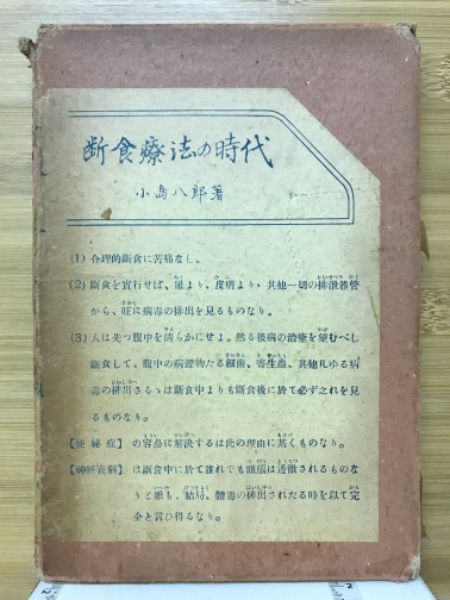 断食療法の時代
小島八郎著
(1) 合理的斷食に苦痛なし。
(2) 斷食を實行せば、尿より、皮膚より、其他一切の排泄器管
から、旺に病毒の排出を見るものなり。
(3) 人は先づ腹中を清らかにせよ。然る後病の治癒を望むべし
斷食して、腹中の病源物たる細菌、寄生蟲、其他凡ゆる病
毒の排出さるゝは斷食中よりも斷食後に於て必ず之れを見
るものなり。
【便秘症】の容易に解決するは此の理由に基くものなり。
【神経衰弱】は斷食中に於て誰れでも頭腦は透徹されるものな
りと雖も、結局、體毒の排出されたる時を以て完
全と言ひ得るなり。